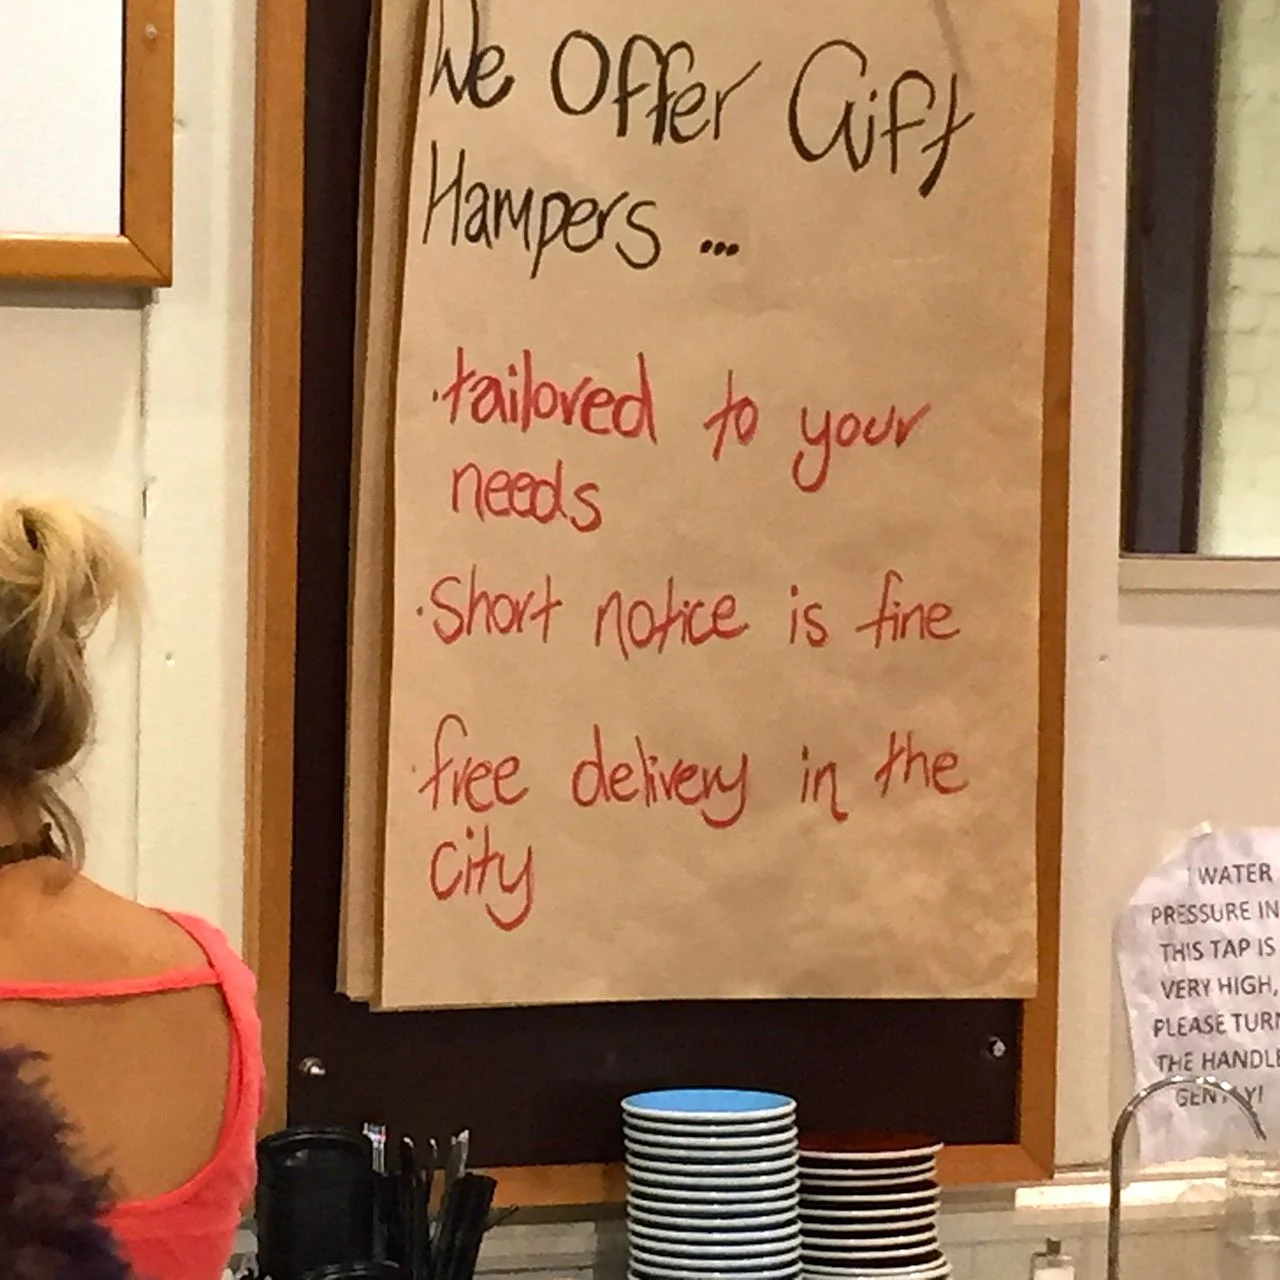 We Offer Gift
Hampers ...
·tailored to your
needs
·Short notice is fine
·free delivery in the
city
WATER
PRESSURE IN
THIS TAP IS
VERY HIGH,
PLEASE TURN
THE HANDLE
GENTLY!